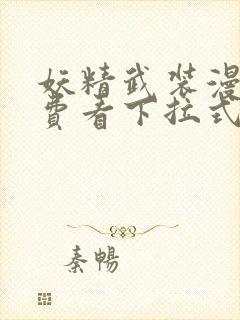 妖精武装漫
费看下拉式
秦暢